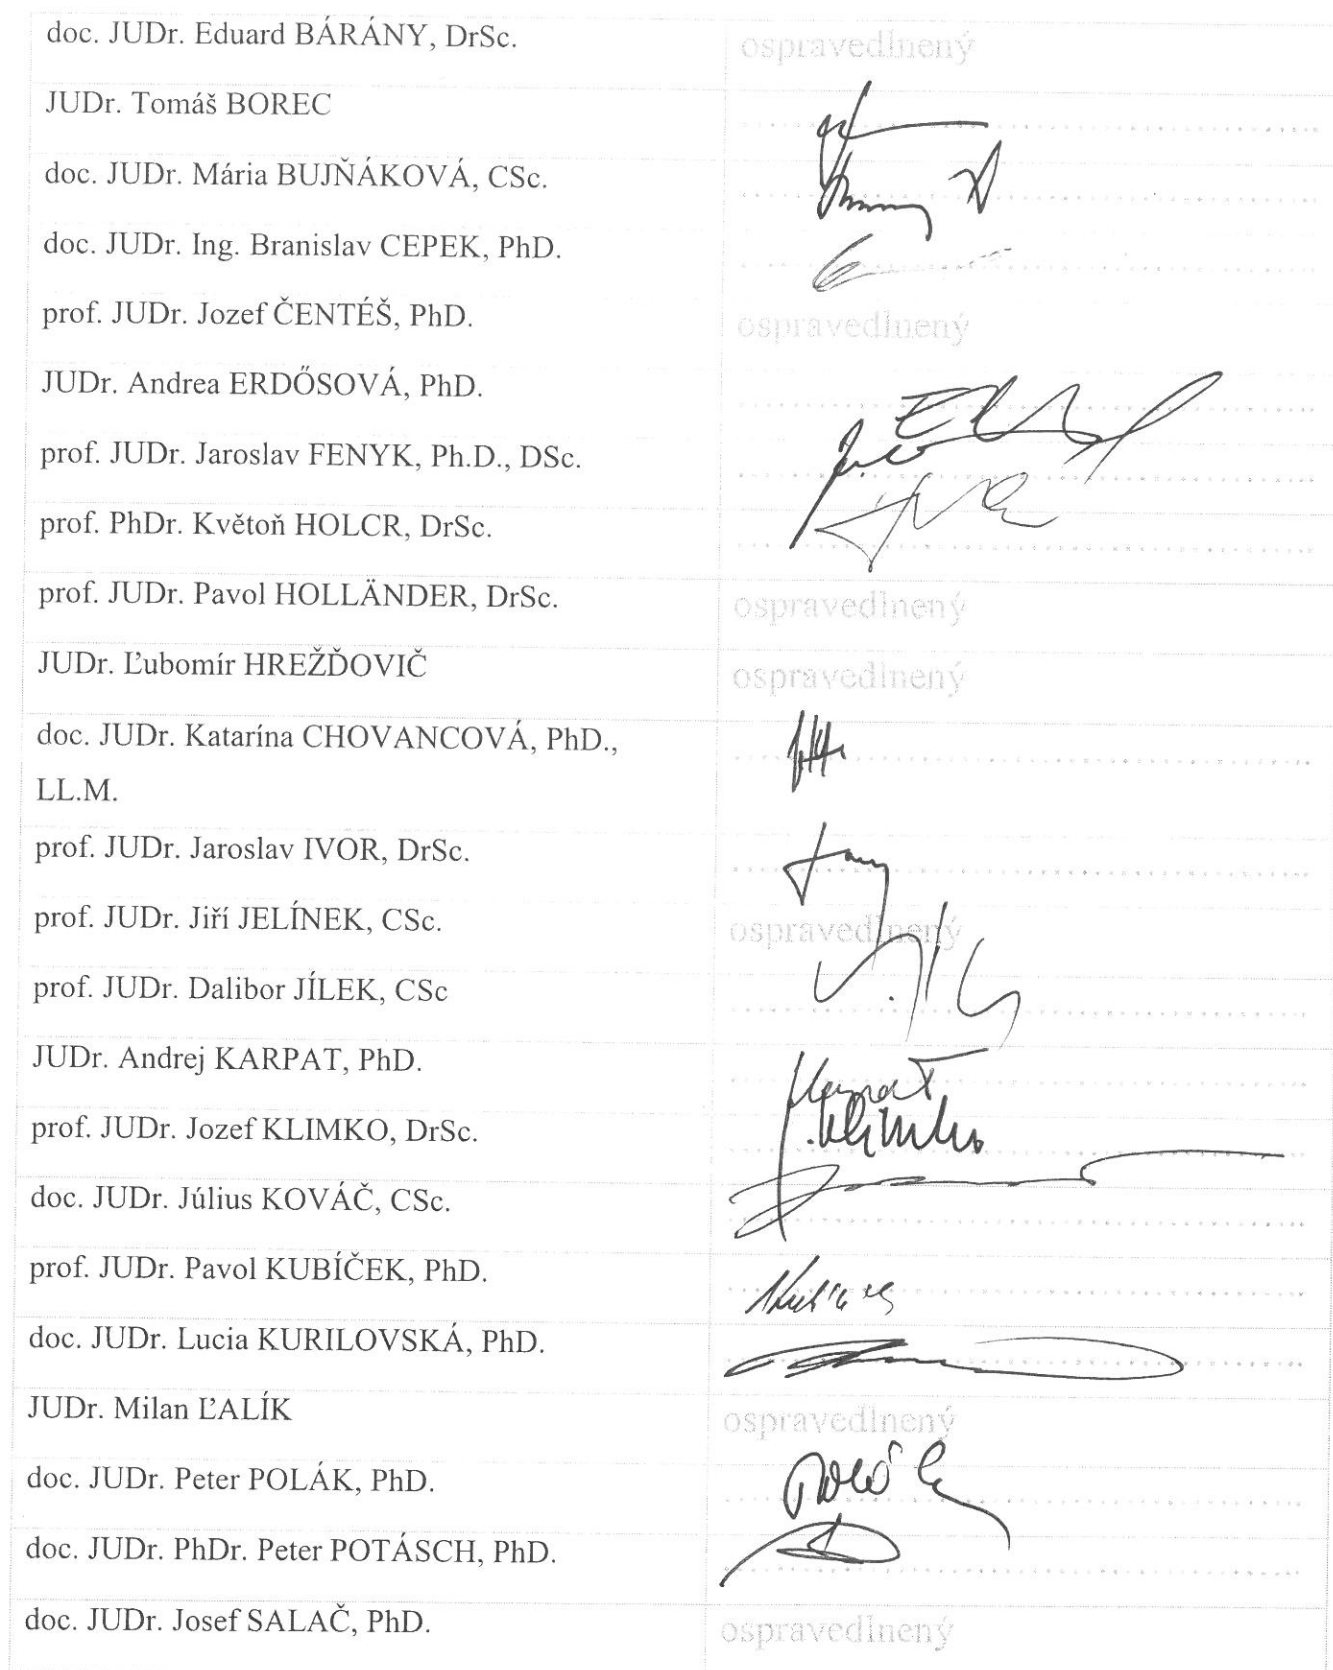 doc. JUDr. Eduard BÁRÁNY, DrSc. ospravedlnený
JUDr. Tomáš BOREC
doc. JUDr. Mária BUJŇÁKOVÁ, CSc.
doc. JUDr. Ing. Branislav CEPEK, PhD.
prof. JUDr. Jozef ČENTÉŠ, PhD. ospravedlnený
JUDr. Andrea ERDŐSOVÁ, PhD.
prof. JUDr. Jaroslav FENYK, Ph.D., DSc.
prof. PhDr. Květoň HOLCR, DrSc.
prof. JUDr. Pavol HOLLÄNDER, DrSc. ospravedlnený
JUDr. Ľubomír HREŽĎOVIČ ospravedlnený
doc. JUDr. Katarína CHOVANCOVÁ, PhD.,
LL.M.
prof. JUDr. Jaroslav IVOR, DrSc.
prof. JUDr. Jiří JELÍNEK, CSc. ospravedlnený
prof. JUDr. Dalibor JÍLEK, CSc
JUDr. Andrej KARPAT, PhD. Karpat
prof. JUDr. Jozef KLIMKO, DrSc. J. Klimko
doc. JUDr. Július KOVÁČ, CSc.
prof. JUDr. Pavol KUBÍČEK, PhD.
doc. JUDr. Lucia KURILOVSKÁ, PhD.
JUDr. Milan ĽALÍK ospravedlnený
doc. JUDr. Peter POLÁK, PhD. Polák
doc. JUDr. PhDr. Peter POTÁSCH, PhD.
doc. JUDr. Josef SALAČ, PhD. ospravedlnený